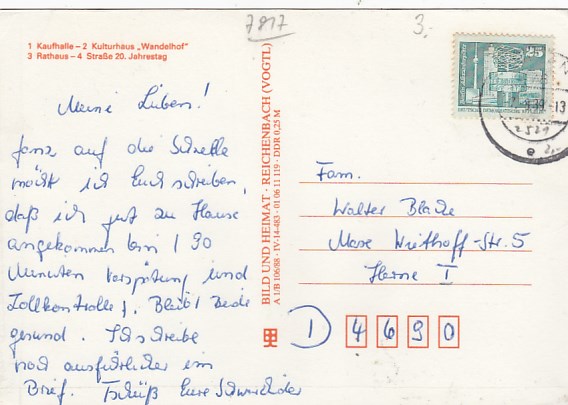 7817
3,-
1 Kaufhalle – 2 Kulturhaus „Wandelhof"
3 Rathaus – 4 Straße 20. Jahrestag
Meine Lieben!
Ganz auf die Schnelle
möcht ich Euch schreiben,
daß ich gut zu Hause
angekommen bin (90
Minuten Verspätung und
Zollkontrolle). Bleibt Beide
gesund. Ich schreibe
noch ausführlicher im
Brief. Tschüß Eure
BILD UND HEIMAT · REICHENBACH (VOGTL)
A 1/B 106/88 · IV-14-483 · 01 06 11 119 · DDR 0,25 M
25
DEUTSCHE DEMOKRATISCHE REPUBLIK
Fam.
Walter
Max Wiethoff-Str. 5
Herne I
D 4690